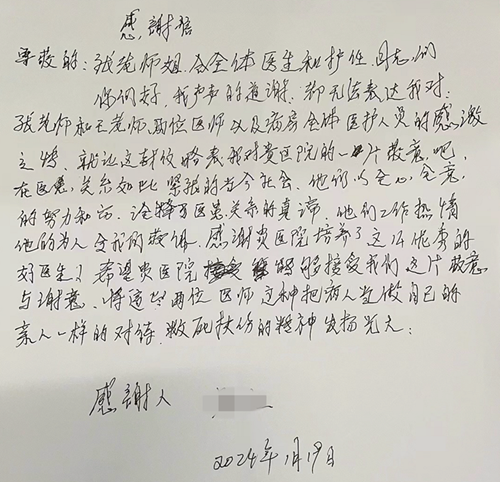 感謝信
尊敬的:张 师姐 全体医生和护 同志们
你们好,我 的道谢,都无法表达我对:
张老师和王老师两位医师以及病房全体医护人员的感激
之情、就让这封信略表我对贵医院的一片敬意吧,
在医患关系如此紧张的当今社会、他们以全心全意
的努力和 诠释了医患关系的真谛,他们工作热情
他的为人令我的敬佩。感谢贵医院培养了这么优秀的
好医生!希望贵医院 能够接受我们这片敬意
与谢意、将这 两位医师这种把病人当做自己的
亲人一样的对待,救死扶伤的精神发扬光大:
感謝人
2024年1月19日